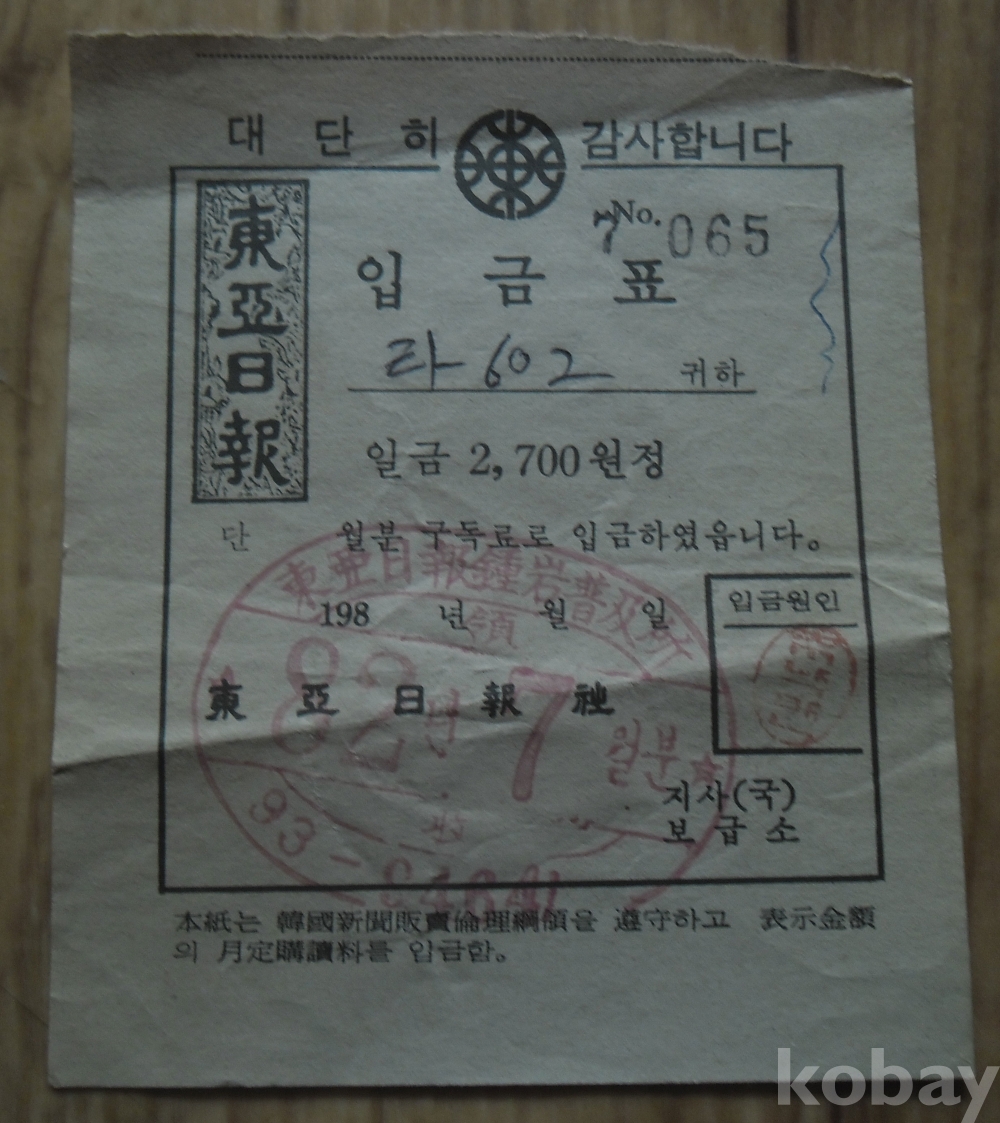 대단히 감사합니다
東亞日報
7 No. 065
입금표
라-602 귀하
일금 2,700원정
단 월분 구독료로 입금하였읍니다。
東亞日報鍾岩普及所
198 년 월 일
領
입금원인
82년 7월분
東亞日報社
지사(국)
보급소
本紙는 韓國新聞販賣倫理綱領을 遵守하고 表示金額
의 月定購讀料를 입금함。
kobay